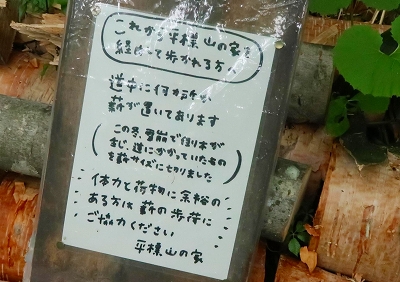 これから平標山の家を
経由して歩かれる方へ
道中に何カ所か
薪が置いてあります
(この冬、雪崩で倒木が
生じ、道にかかっていたもの
を薪サイズにきりました)
体力と荷物に余裕の
ある方は薪の歩荷に
ご協力ください
平標山の家